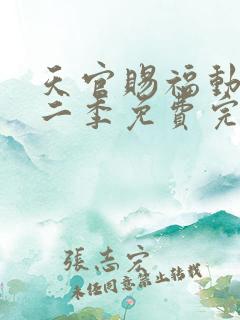 天官賜福動
二季免費完
張志宏
未任同意禁止转载